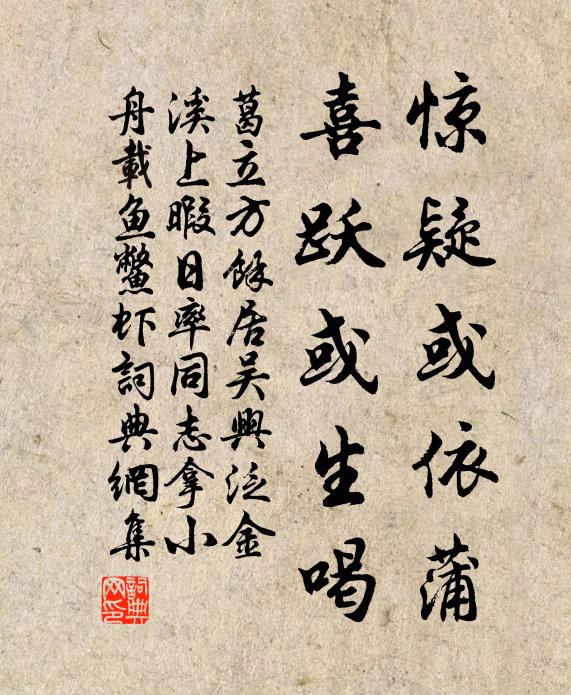 惊疑或依蒲
喜跃或生喝
葛立方馀居吴興泛金
溪上暇日率同志拿小
舟載鱼鱉虾詞典網集
詞典
网印